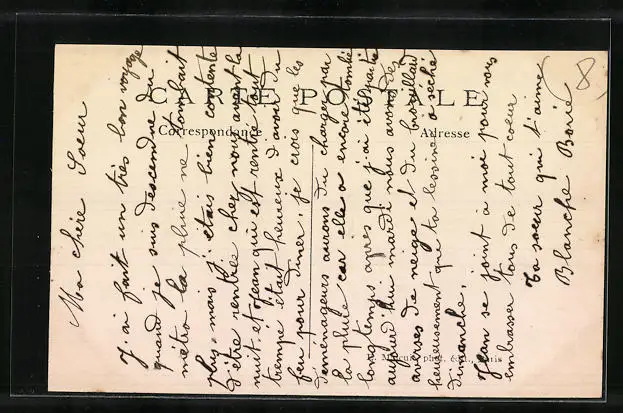 CARTE POSTALE
Correspondance
Adresse
8
Ma chère Soeur
J'ai fait un très bon voyage
quand je suis descendue du
métro la pluie ne tombait
plus, mais j'étais bien contente
d'être rentrée chez nous avant la
nuit, et Jean qui est rentré tout
trempé était heureux d'avoir du
feu pour diner, je crois que les
déménageurs aurons du charger par
la pluie car elle a encore tombé
longtemps après que j'ai été partie
aujourd'hui mardi nous avons des
averses de neige et du brouillard
heureusement que ta lessive a séché
dimanche.
Jean se joint a moi pour vous
embrasser tous de tout coeur
Ta soeur qui t'aime
Blanche
phot. édit., Paris